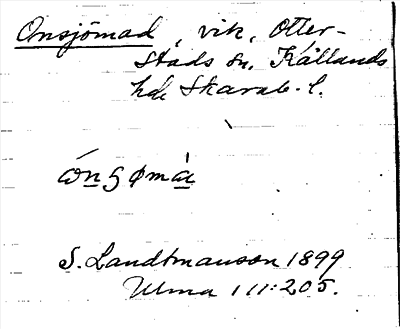 Onsjömad, vik, Otter-
stads sn. Kållands
hde Skarab. l.
ón ʒ ømȧ
S. Landtmanson 1899
Ulma 111:205.